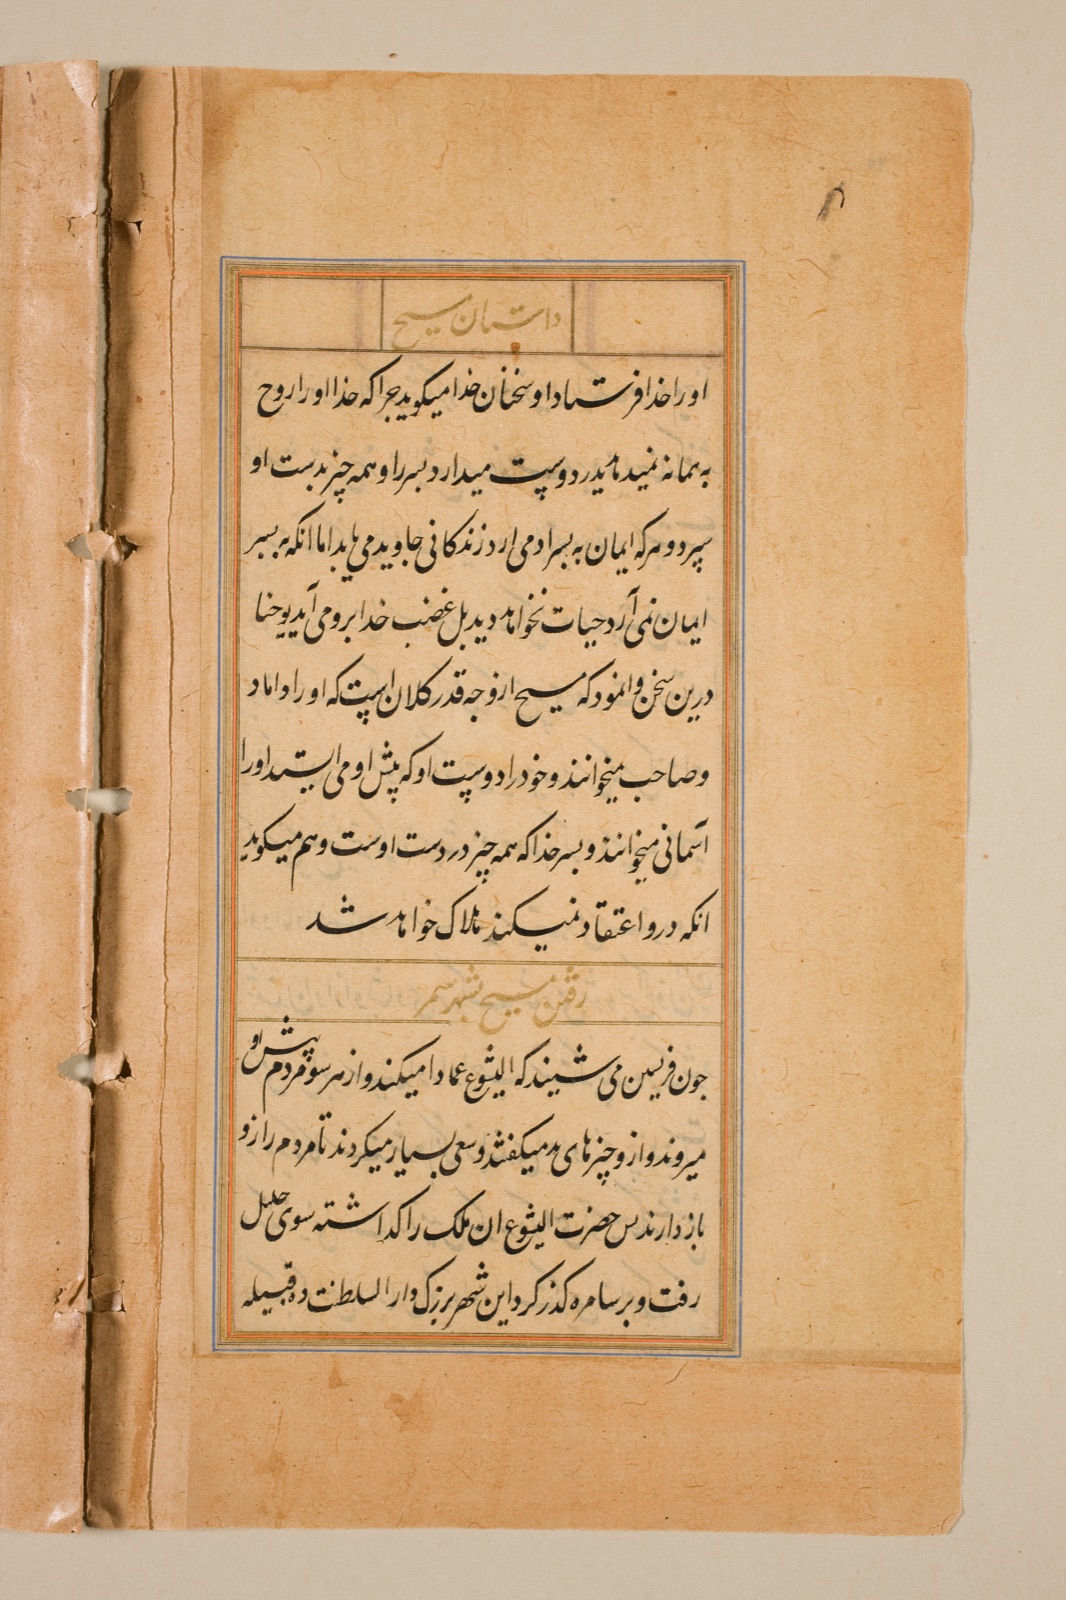 داستان مسیح
او را خدا فرستاد او سخنان خدا میکوید جرا که خدا او را روح
به بمانه نمیدهد پدر دوست میدارد بسر را و همه چیز بدست او
سپرد و هر که ایمان به بسر ادمی ارد زندکانی جاوید می یابد اما انکه به بسر
ایمان نمی آرد حیات نخواهد دید بل غضب خدا برو می آید یوحنا
درین سخن وانمود که مسیح ازو چه قدر کلان است که او را داماد
و صاحب میخوانند و خود را دوست او که پیش او می ایستد او را
آسمانی میخوانند و بسر خدا که همه چیز در دست اوست و هم میکوید
انکه درو اعتقاد نمیکند هلاک خواهد شد
رفتن مسیح بشهر سمر
جون فریسین می شنیند که الیشوع عماد امیکند و از هر سو مردم پیش او
میروند و ازو چیزهای بد میکفتند و سعی بسیار میکردند تا مردم را ازو
باز دارند بس حضرت الیشوع ان ملک را کذاشته سوی جلیل
رفت و بر سامره کذر کرد این شهر بزرک دار السلطنت ده قبیله